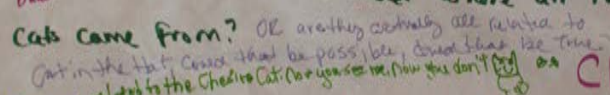 Cats Came From? OR are they actually all related to
Cat in the Hat Could that be possible, could that be True.
to the Chesire Cat: Now you see me, Now you don't
C